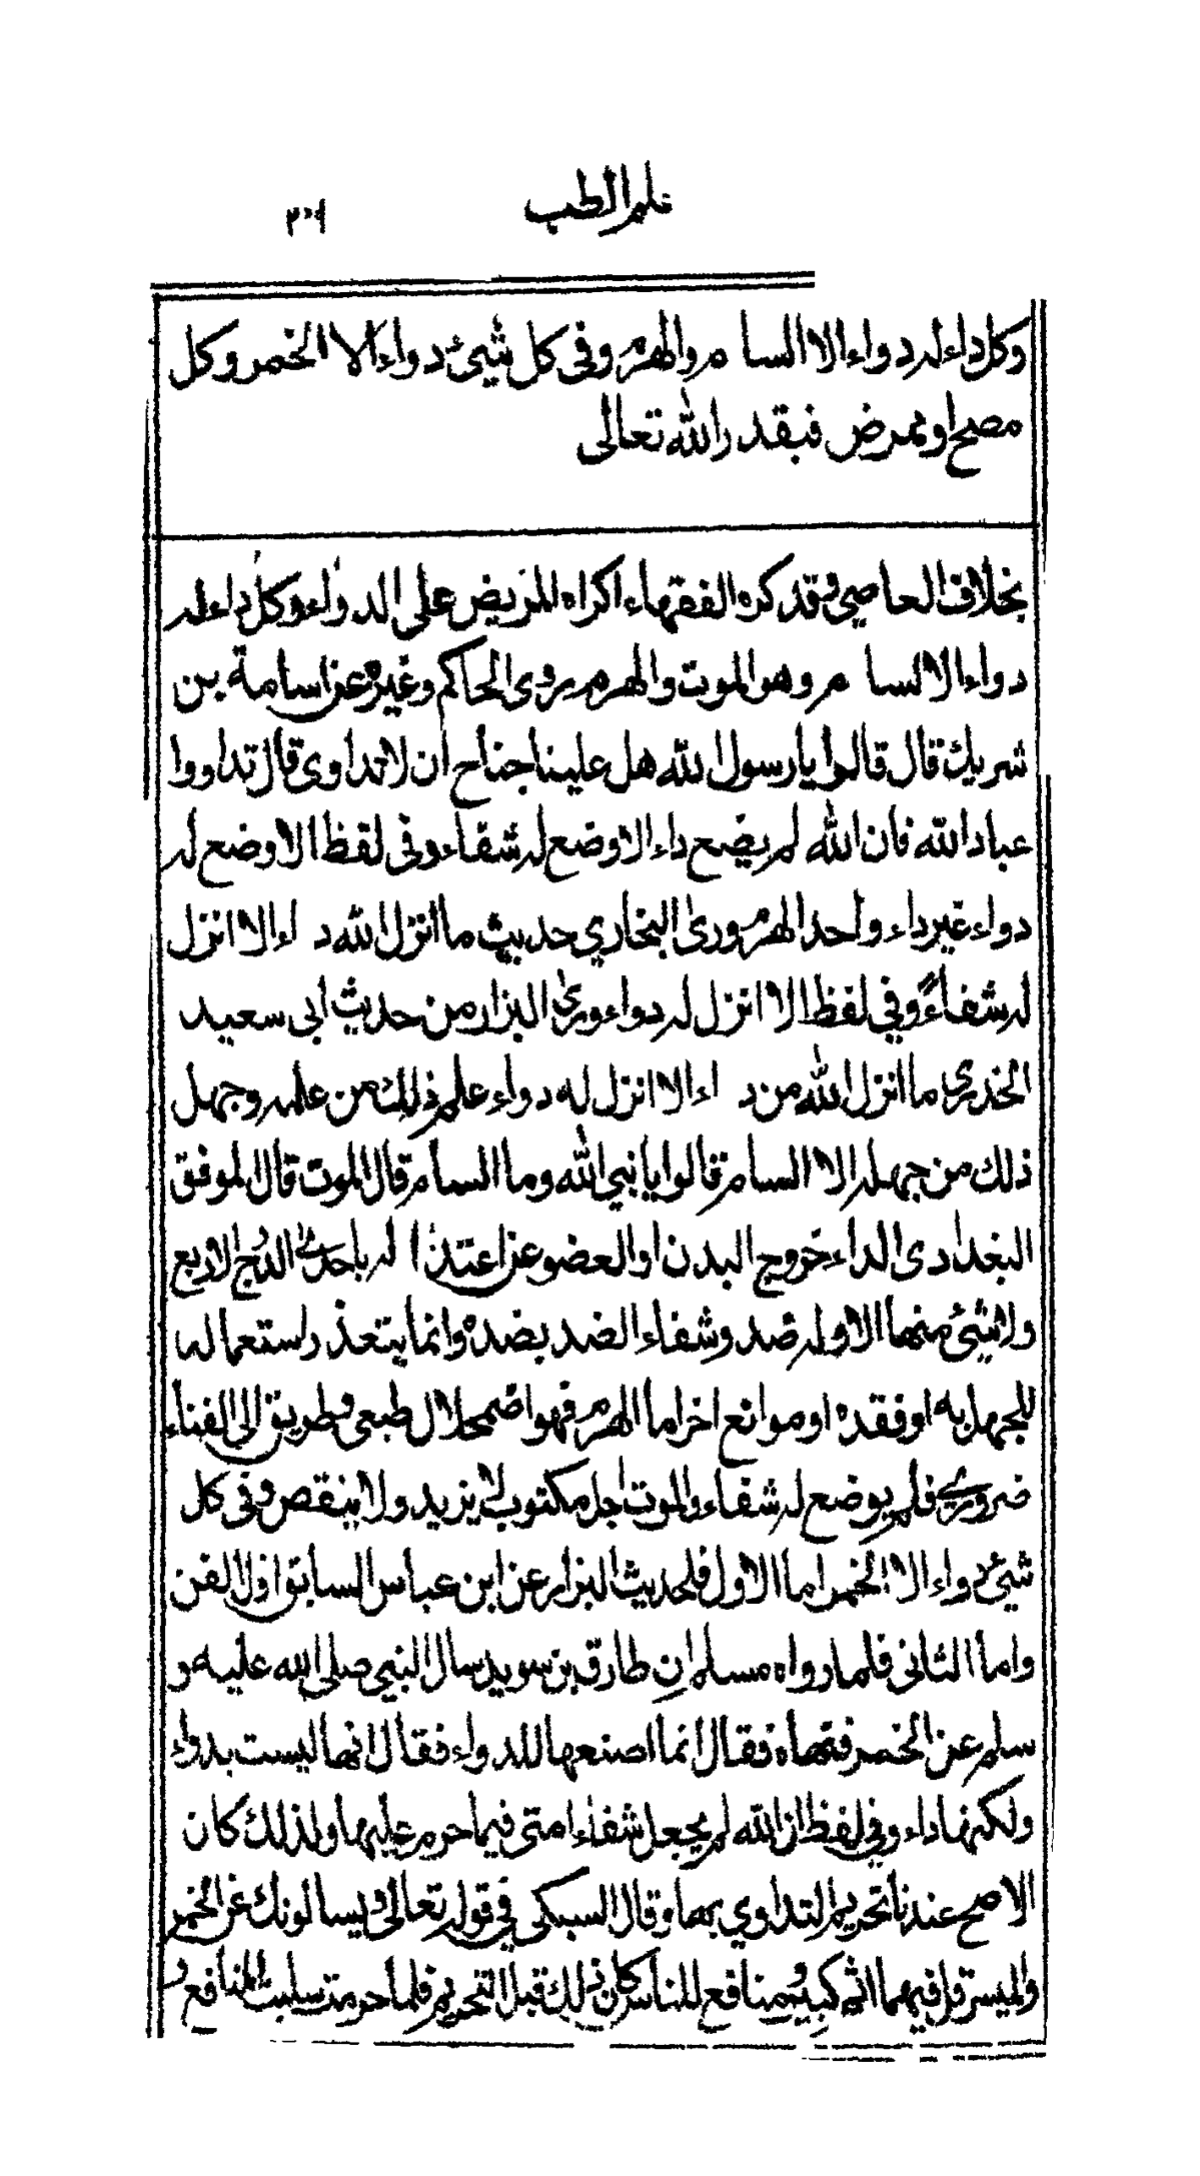 علم الطب
وكل داء له دواء الا السا م والهرم وفي كل شيئ دواء الا الخمر وكل
مصح او ممرض فبقد رالله تعالى
بخلاف العاصي وقد كره الفقهاء اكراه المريض على الدواء وكل داء له
دواء الا السا م وهو الموت والهرم روى الحاكم وغيره عن اسامة بن
شريك قال قالوا يارسول الله هل علينا جناح ان لا نتداوى قال تداووا
عباد الله فان الله لم يضع داء الا وضع له شفاء وفي لفظ الا وضع له
دواء غير داء واحد الهرم وروى البخاري حديث ما انزل الله د اء الا انزل
له شفاءً وفي لفظ الا انزل له دواء وروى البزار من حديث ابى سعيد
الخدري ما انزل الله من د اء الا انزل له دواء علم ذلك من علمه وجهل
ذلك من جهله الا السام قالوا يا نبي الله وما السام قال الموت قال الموفق
البغدادى الداء خروج البدن او العضو عن اعتدا له باحدى الدرج الاربع
ولا شئ منها الا وله ضد وشفاء الضد بضده وانما يتعذ ر استعما له
للجهل به او فقده او موانع اخر اما الهرم فهو اضمحلال طبعى وطريق الى الفناء
ضروري فلم يوضع له شفاء والموت اجل مكتوب لا يزيد ولا ينقص وفى كل
شئ دواء الا الخمر اما الاول فلحديث البزار عن ابن عباس السابق اول الفن
واما الثانى فلما رواه مسلم ان طارق بن سويد سال النبي صلى الله عليه و
سلم عن الخمر فنهاه فقال انما اصنعها للدواء فقال انها ليست بدواء
ولكنها داء وفي لفظ ان الله لم يجعل شفاء امتى فيما حرم عليها ولذلك كان
الاصح عندنا تحريم التداوي بها وقال السبكى في قوله تعالى ويسالونك عن الخمر
والميسر قل فيهما اثم كبير ومنافع للناس كان ذلك قبل التحريم فلما حرمت سلبت المنافع و